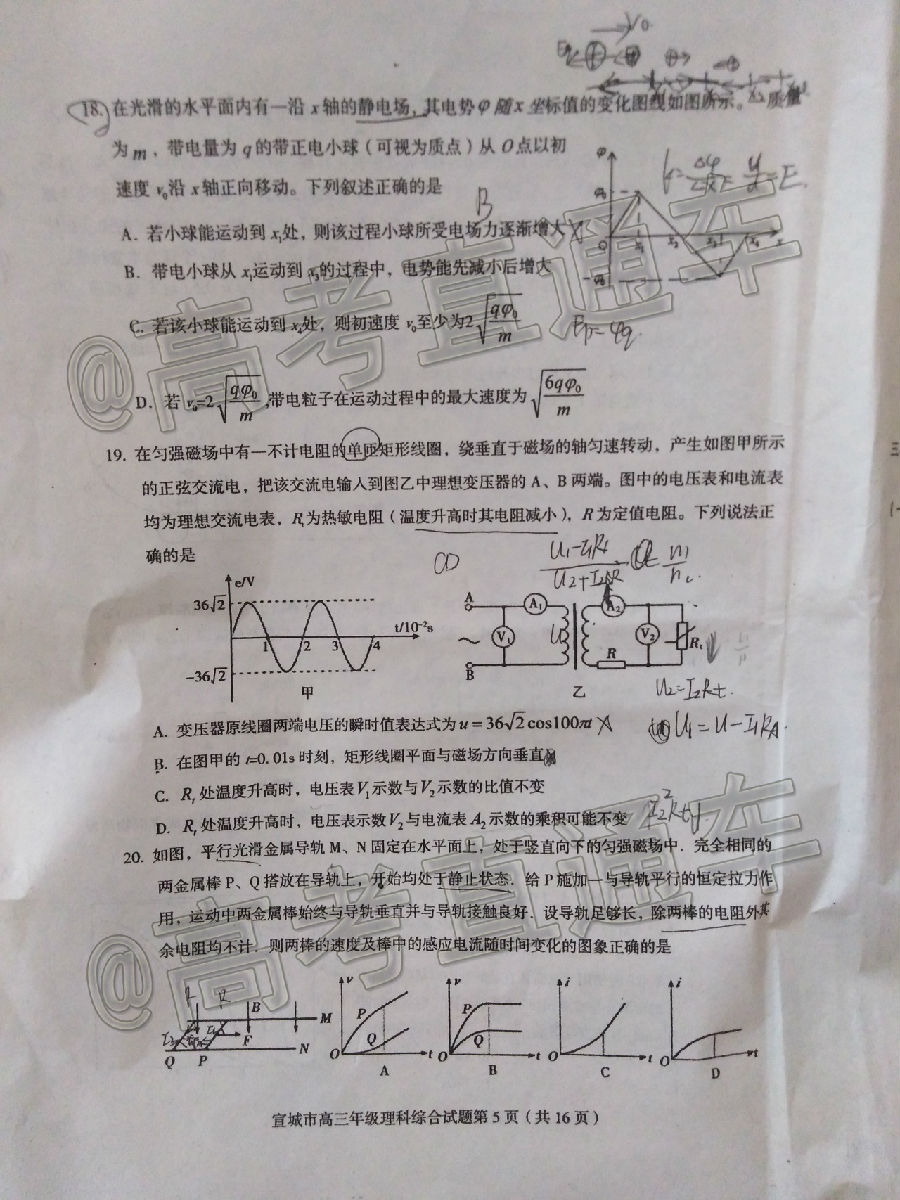 18. 在光滑的水平面内有一沿 x 轴的静电场，其电势 φ 随 x 坐标值的变化图线如图所示。一质量
为 m，带电量为 q 的带正电小球（可视为质点）从 O 点以初
速度 v₀ 沿 x 轴正向移动。下列叙述正确的是
B
A. 若小球能运动到 x₁ 处，则该过程小球所受电场力逐渐增大
B. 带电小球从 x₁ 运动到 x₃ 的过程中，电势能先减小后增大
C. 若该小球能运动到 x₄ 处，则初速度 v₀ 至少为 2√(qφ₀/m)
D. 若 v₀=2√(qφ₀/m)，带电粒子在运动过程中的最大速度为 √(6qφ₀/m)
φ
φ₀
O
x₁ x₂ x₃ x₄ x
-φ₀
Ep=φq
19. 在匀强磁场中有一不计电阻的单匝矩形线圈，绕垂直于磁场的轴匀速转动，产生如图甲所示
的正弦交流电，把该交流电输人到图乙中理想变压器的 A、B 两端。图中的电压表和电流表
均为理想交流电表，Rt为热敏电阻（温度升高时其电阻减小），R 为定值电阻。下列说法正
确的是
CD
e/V
36√2
t/10⁻²s
1 2 3 4
-36√2
甲
A
A₁ A₂
V₁ V₂
R Rt
B
乙
A. 变压器原线圈两端电压的瞬时值表达式为 u = 36√2cos100πt
B. 在图甲的 t=0.01s 时刻，矩形线圈平面与磁场方向垂直
C. Rt 处温度升高时，电压表 V₁ 示数与 V₂ 示数的比值不变
D. Rt 处温度升高时，电压表示数 V₂ 与电流表 A₂ 示数的乘积可能不变
20. 如图，平行光滑金属导轨 M、N 固定在水平面上，处于竖直向下的匀强磁场中．完全相同的
两金属棒 P、Q 搭放在导轨上，开始均处于静止状态．给 P 施加一与导轨平行的恒定拉力作
用，运动中两金属棒始终与导轨垂直并与导轨接触良好．设导轨足够长，除两棒的电阻外其
余电阻均不计．则两棒的速度及棒中的感应电流随时间变化的图象正确的是
B M
F
Q P N
v P Q O t A
v P Q O t B
i O t C
i O t D
宣城市高三年级理科综合试题第 5 页（共 16 页）
@高考直通车
@高考直通车